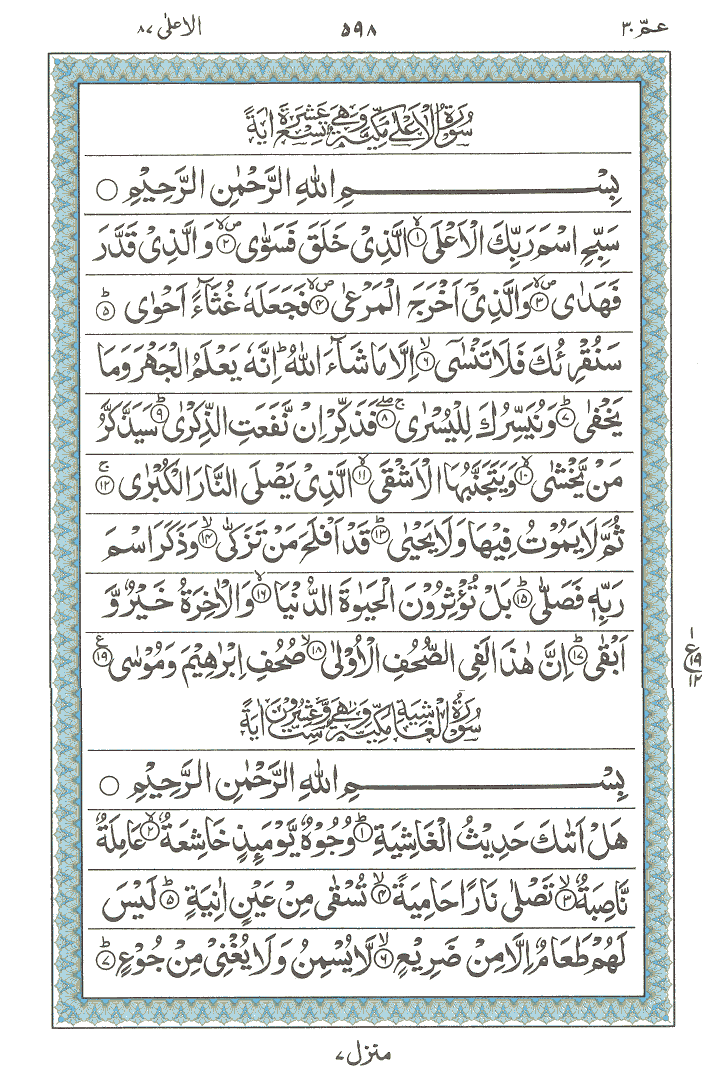 عـمّ ۳۰
۵۹۸
الاعلىٰ ۸۷
سُوْرَةُ الْاَعْلٰى مَكِّيَّةٌ وَّهِيَ تِسْعَ عَشْرَةَ اٰيَةً
بِسْــــــــمِ اللّٰهِ الرَّحْمٰنِ الرَّحِيْمِ ○
سَبِّحِ اسْمَ رَبِّكَ الْاَعْلَى ۙ۱ الَّذِيْ خَلَقَ فَسَوّٰى ۪ۙ۲ وَالَّذِيْ قَدَّرَ
فَهَدٰى ۪ۙ۳ وَالَّذِيْٓ اَخْرَجَ الْمَرْعٰى ۪ۙ۴ فَجَعَلَهٗ غُثَآءً اَحْوٰى ؕ۵
سَنُقْرِئُكَ فَلَا تَنْسٰٓى ۙ۶ اِلَّا مَا شَآءَ اللّٰهُ ؕ اِنَّهٗ يَعْلَمُ الْجَهْرَ وَمَا
يَخْفٰى ؕ۷ وَنُيَسِّرُكَ لِلْيُسْرٰى ۚۖ۸ فَذَكِّرْ اِنْ نَّفَعَتِ الذِّكْرٰى ؕ۹ سَيَذَّكَّرُ
مَنْ يَّخْشٰى ۙ۱۰ وَيَتَجَنَّبُهَا الْاَشْقَى ۙ۱۱ الَّذِيْ يَصْلَى النَّارَ الْكُبْرٰى ۚ۱۲
ثُمَّ لَا يَمُوْتُ فِيْهَا وَلَا يَحْيٰى ؕ۱۳ قَدْ اَفْلَحَ مَنْ تَزَكّٰى ۙ۱۴ وَذَكَرَ اسْمَ
رَبِّهٖ فَصَلّٰى ؕ۱۵ بَلْ تُؤْثِرُوْنَ الْحَيٰوةَ الدُّنْيَا ۙ۱۶ وَالْاٰخِرَةُ خَيْرٌ وَّ
اَبْقٰى ؕ۱۷ اِنَّ هٰذَا لَفِي الصُّحُفِ الْاُوْلٰى ۙ۱۸ صُحُفِ اِبْرٰهِيْمَ وَمُوْسٰى ۱۹ ع
۱
ع ۱۹
۱۲
سُوْرَةُ الْغَاشِيَةِ مَكِّيَّةٌ وَّهِيَ سِتٌّ وَّعِشْرُوْنَ اٰيَةً
بِسْــــــــمِ اللّٰهِ الرَّحْمٰنِ الرَّحِيْمِ ○
هَلْ اَتٰىكَ حَدِيْثُ الْغَاشِيَةِ ؕ۱ وُجُوْهٌ يَّوْمَئِذٍ خَاشِعَةٌ ۙ۲ عَامِلَةٌ
نَّاصِبَةٌ ۙ۳ تَصْلٰى نَارًا حَامِيَةً ۙ۴ تُسْقٰى مِنْ عَيْنٍ اٰنِيَةٍ ؕ۵ لَيْسَ
لَهُمْ طَعَامٌ اِلَّا مِنْ ضَرِيْعٍ ۙ۶ لَّا يُسْمِنُ وَلَا يُغْنِيْ مِنْ جُوْعٍ ؕ۷
منزل ۷